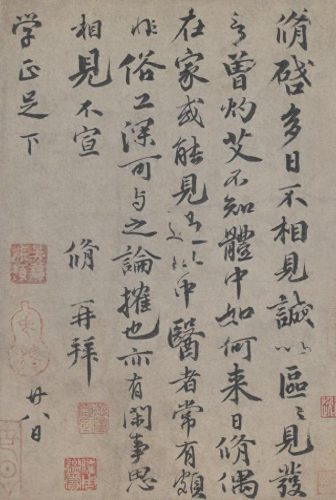 脩啓多日不相見誠以區〻見發
言曾灼艾不知體中如何来日脩偶
在家或能見過此中醫者常有頗
非俗工深可与之論攉也亦有閑事思
相見不宣 脩再拜
学正足下 廿八日